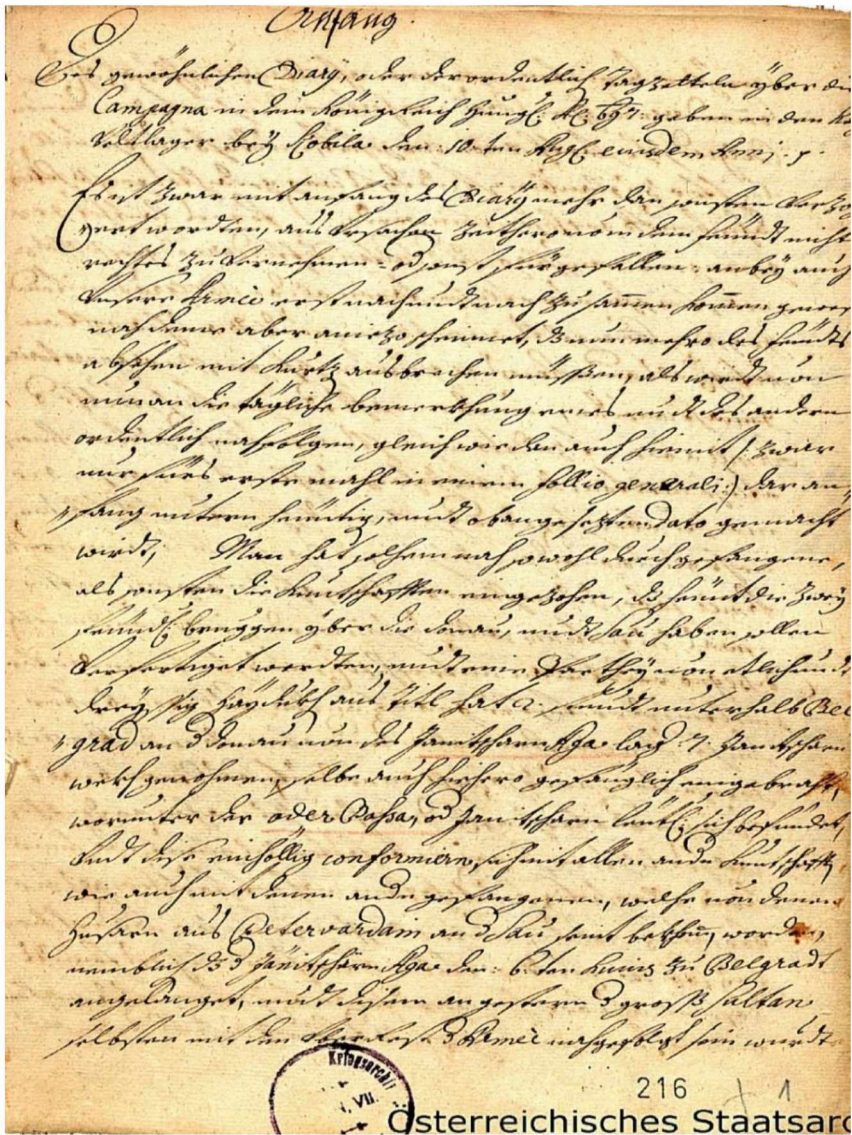 Anfang.
Des gewöhnlichen Diarÿ, oder der ordentlich. Tagzetteln yber die
Campagna in dem Königreich Hung: A: 697 geben in den
Veldtlager beÿ Kobila den 10.ten Aug: eiusdem Anni.
Es ist zwar mit anfang des Diarÿ mehr dan sonsten
wordten, aus Ursachen zeithero von dem feindt nicht
rechtes zu vernehmen, od sonst fürgefallen, anbeÿ auch
Unsere Armee erst nach undt nach zusammen kommen
nachdeme aber aniezo scheinet, dz nunmehro des feindts
absehen mit kurtz ausbrechen müssen, als wirdt von
nun an die tägliche bemerkhung eines undt des andern
ordentlich nachfolgen, gleich wie dan auch hiemit /: zwar
nur fürs erste mahl in einem follio generali :/ der an-
fang untern heuntig, undt obangesezten Dato gemacht
wirdt, Man hat solchem nach sowohl durch gefangene,
als sonsten die Kundtschafften eingezohen, dz heunt die zweÿ
feindl: bruggen yber die donau, undt Sau haben sollen
verfertiget werdten, undt eine Partheÿ von etlich undt
dreÿssig Haÿdukh aus Titl hat unterhalb Bel-
grad an d donau von des Janitscharn Aga 7 Janitscharn
wekhgenohmen, selbe auch hiehero gefänglich eingebracht,
worunter der oder Bassa, od Janitscharn sich befindet,
Undt dise einhöllig conformiern, sich mit allen andn Kundtschafften
wie auch mit denen andn gefangenen, welche von denen
Husarn aus Petervardain an d Sau seint bekhomen worden,
nemblich dz d Janitscharn Aga den 6.ten huius zu Belgradt
angelanget, undt disem an gestern d gross Sultan
selbsten mit dem Überrest d Armee nachgefolgt sein wirdt
Kriegsarchiv
VII.
216 1
Österreichisches Staatsarc